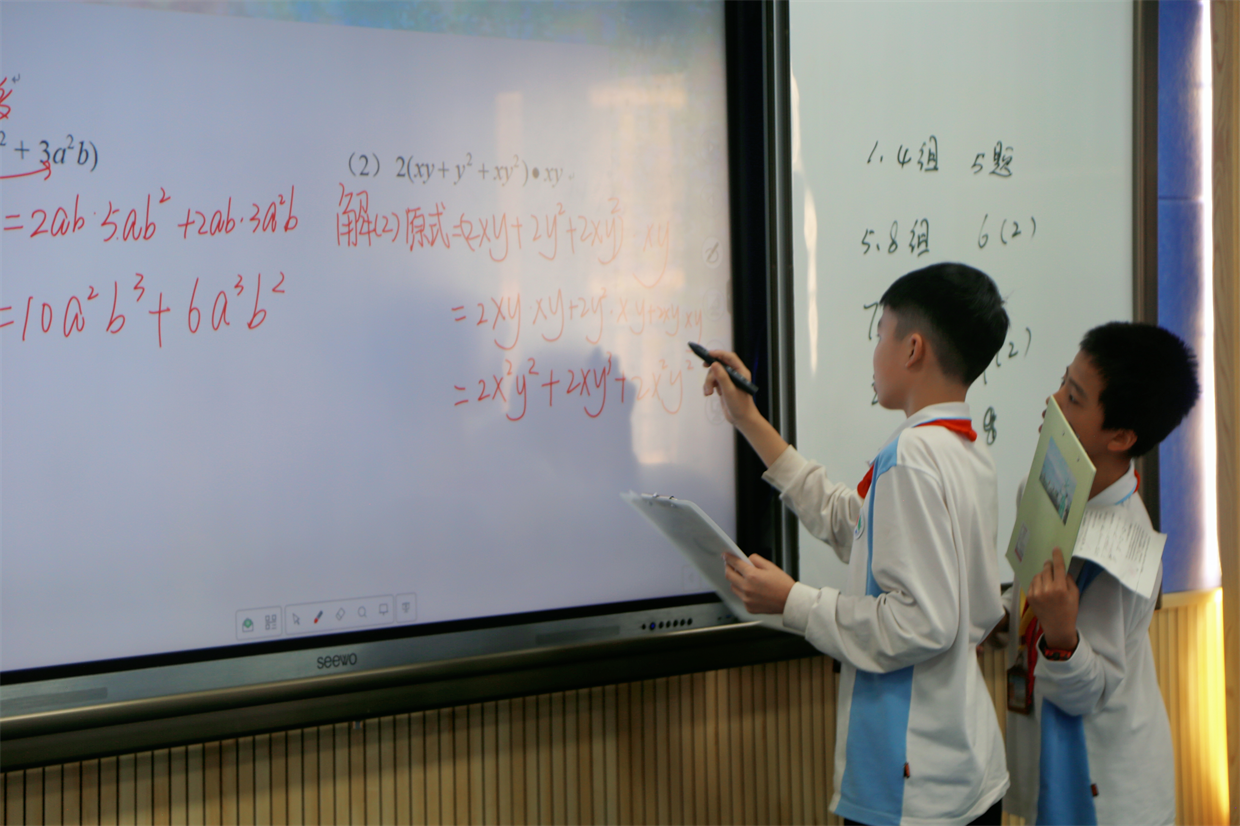 ² + 3a²b)
=2ab·5ab²+2ab·3a²b
=10a²b³+6a³b²
（2）2(xy+y²+xy²)•xy
解(2)原式=(2xy+2y²+2xy²) xy
=2xy·xy+2y²·xy+2xy·xy
=2x²y²+2xy³+2x²y²
seewo
1.4组 5题
5.8组 6(2)
7
(2)
8